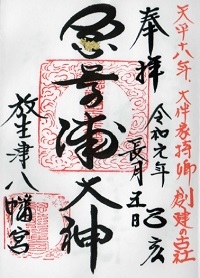 天平十八年、大伴家持卿 創建の古社
奉拝 令和元年 己亥
長月五日
奈呉浦大神
放生津八幡宮